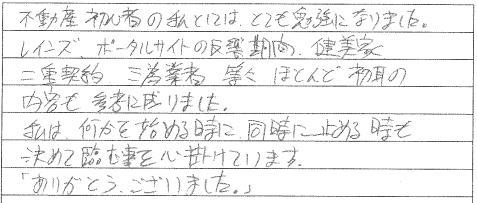 不動産初心者の私としては、とても勉強になりました。
レインズ、ポータルサイトの反響期間、健美家
二重契約 三為業者 等々 ほとんど初耳の
内容も参考に成りました。
私は、何かを始める時に、同時に止める時も
決めて臨む事を心掛けています。
「ありがとう、ございました。」